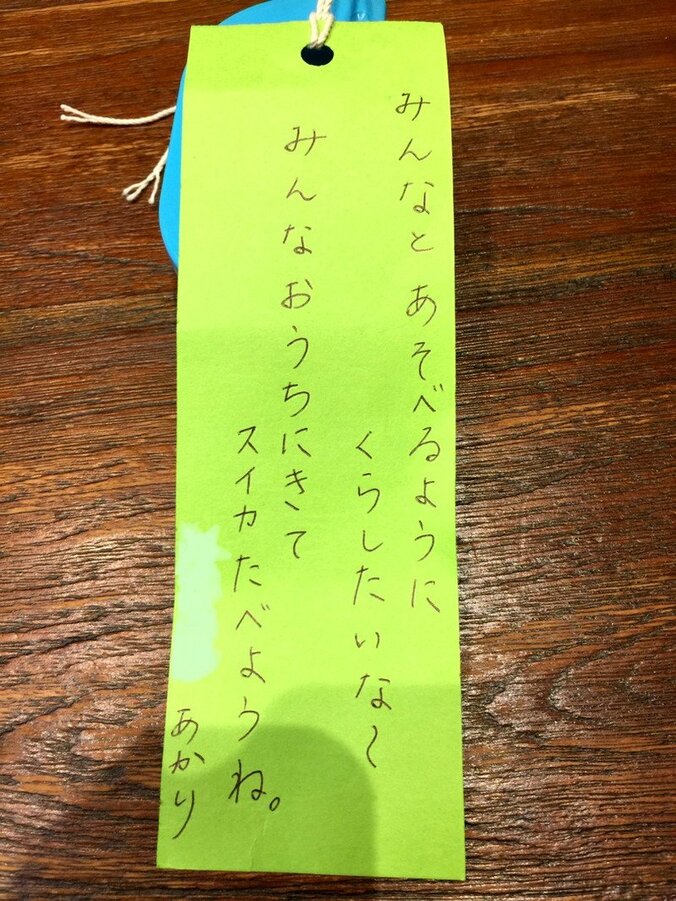 みんなと あそべるように
くらしたいな〜
みんなおうちにきて
スイカたべようね。
あかり